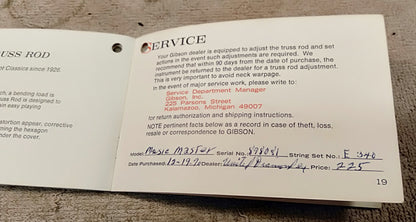 USS ROD
of Classics since 1926.
ch, a bending load is
uss Rod is designed to
distortion appear, corrective
ming the hexagon
under the cover.
SERVICE
Your Gibson dealer is equipped to adjust the truss rod and set
actions in the event such adjustments are required. We
recommend that within 90 days from the date of purchase, the
instrument be returned to the dealer for a truss rod adjustment.
This is very important to avoid neck warpage.
In the event of major service work, please write to:
Service Department Manager
Gibson, Inc.
225 Parsons Street
Kalamazoo, Michigan 49007
for return authorization and shipping instructions.
NOTE pertinent facts below as a record in case of theft, loss,
resale or correspondence to GIBSON.
Model: Music Master Serial No. String Set No.: E 340
Date Purchased: Dealer: Price: 225
19